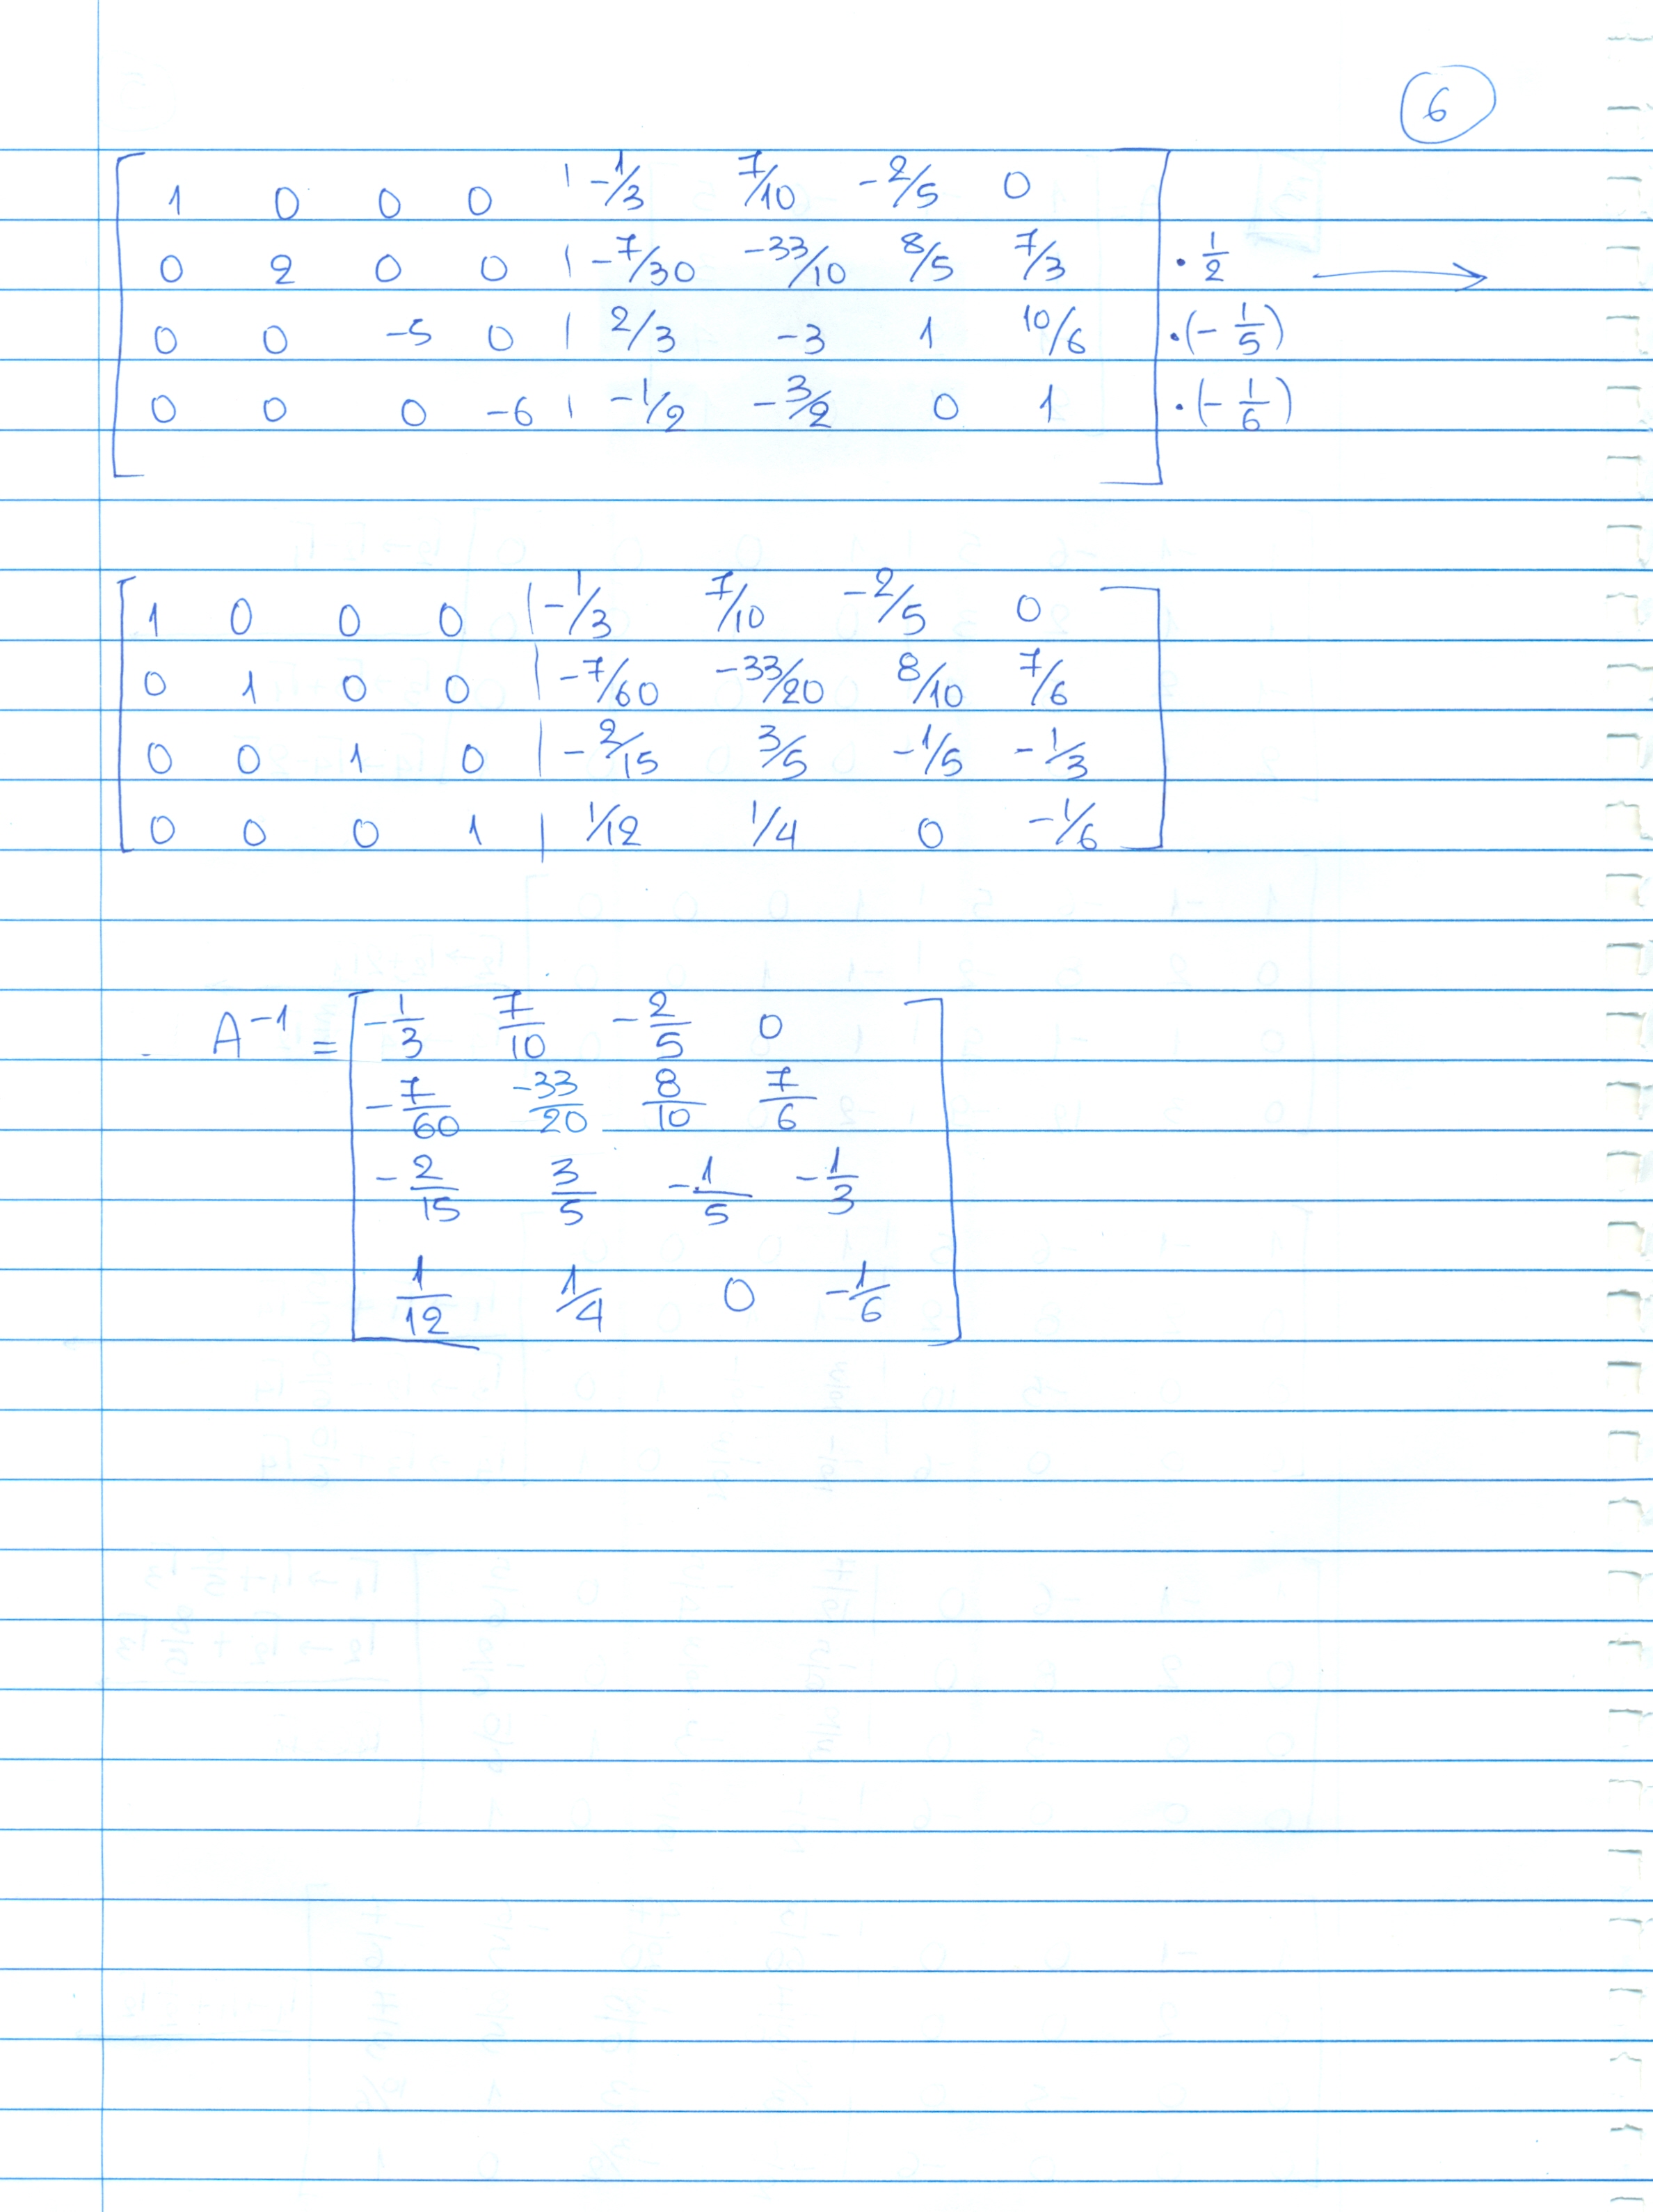 6
1 0 0 0 | -1/3 7/10 -2/5 0
0 2 0 0 | -7/30 -33/10 8/5 7/3 · 1/2 →
0 0 -5 0 | 2/3 -3 1 10/6 ·(- 1/5)
0 0 0 -6 | -1/2 -3/2 0 1 ·(- 1/6)
1 0 0 0 | -1/3 7/10 -2/5 0
0 1 0 0 | -7/60 -33/20 8/10 7/6
0 0 1 0 | -2/15 3/5 -1/5 -1/3
0 0 0 1 | 1/12 1/4 0 -1/6
A⁻¹ = -1/3 7/10 -2/5 0
-7/60 -33/20 8/10 7/6
-2/15 3/5 -1/5 -1/3
1/12 1/4 0 -1/6